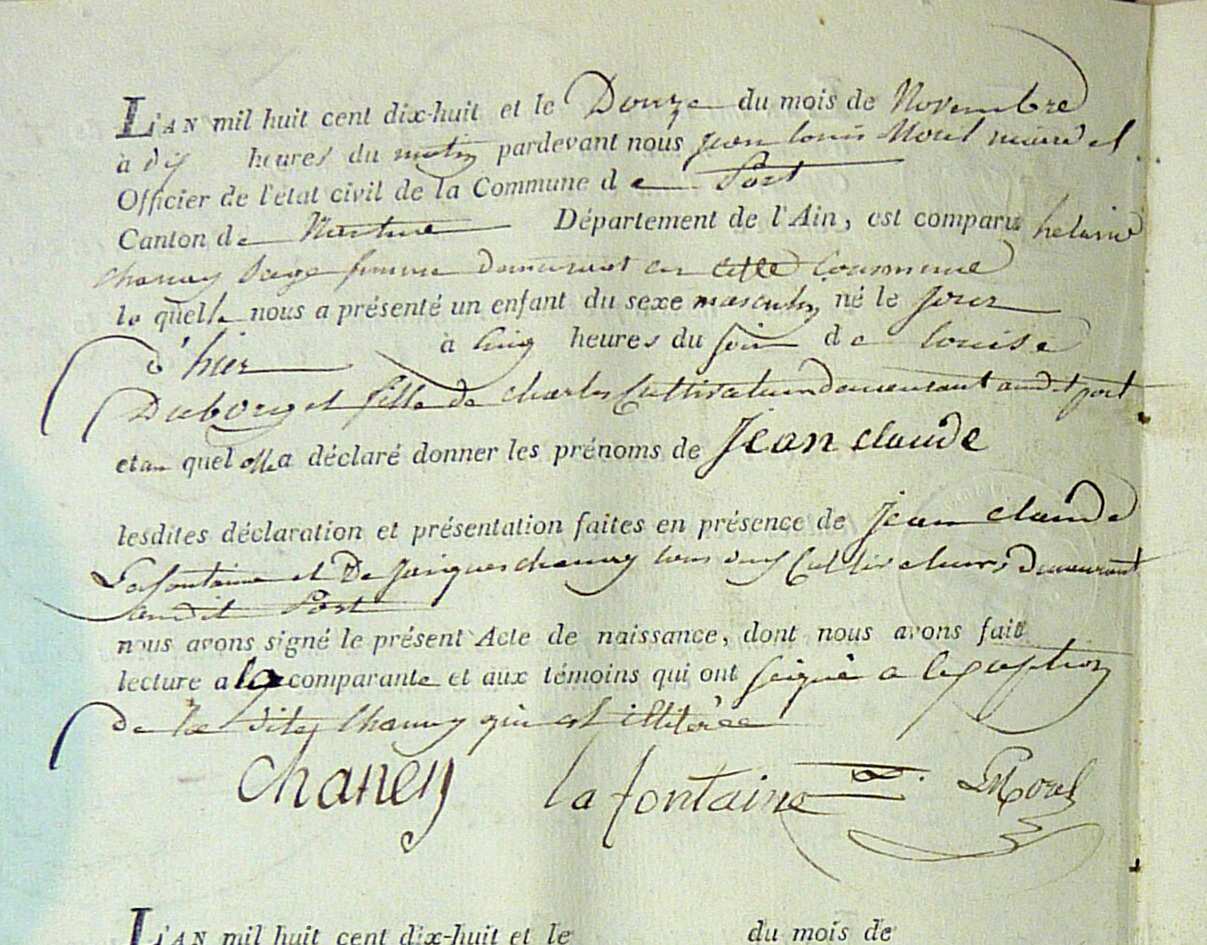 L'AN mil huit cent dix-huit et le Douze du mois de Novembre
à dix heures du matin pardevant nous jean Louis Morel maire et
Officier de l'état civil de la Commune de Port
Canton de Nantua Département de l'Ain, est comparu helaine
chaney Sage femme demeurant en cette Commune
la quelle nous a présenté un enfant du sexe masculin né le jour
d'hier à Cinq heures du soir de Louise
Duborget fille de charles Cultivateur demeurant audit port
et au quel elle a déclaré donner les prénoms de Jean claude
lesdites déclaration et présentation faites en présence de Jean claude
Lafontaine et De Jacques chaney tous deux Cultivateurs Demeurant
audit Port
nous avons signé le présent Acte de naissance, dont nous avons fait
lecture a la comparante et aux témoins qui ont seigné a lexseption
De la dite Chaney qui est illiterée
chaney la fontaine LMorel
L'AN mil huit cent dix-huit et le du mois de